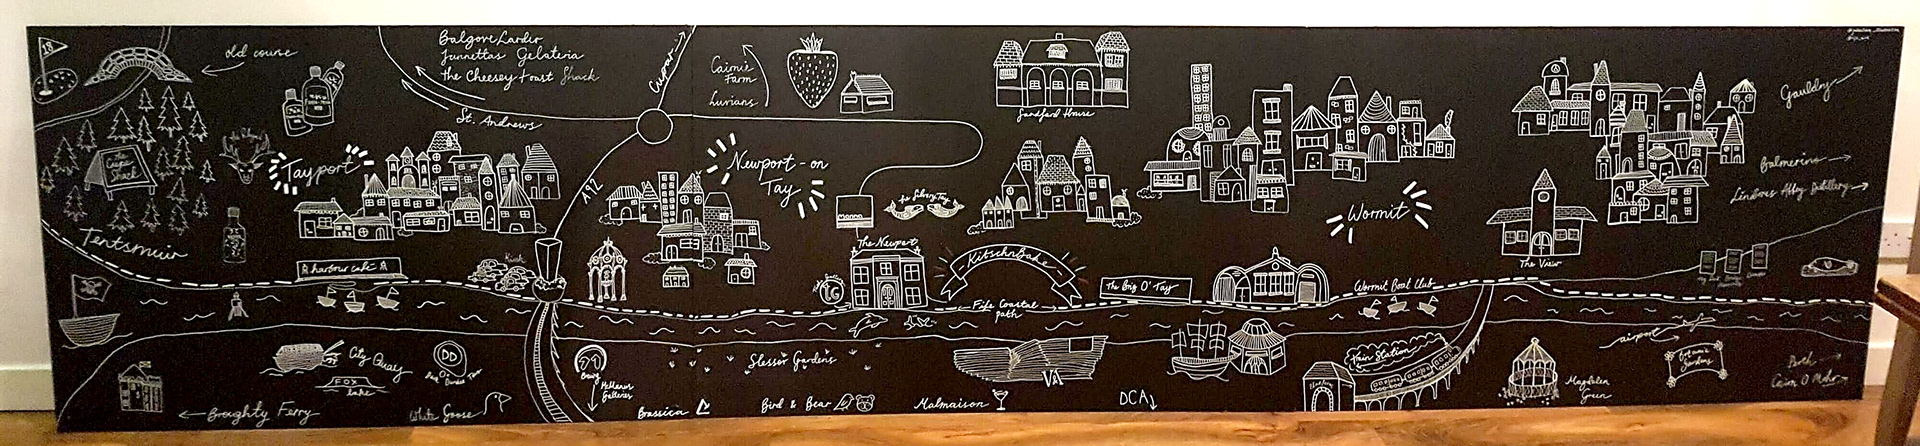 18
old course
Balgove Larder
Jannettas Gelateria
The Cheesey toast Shack
St. Andrews
Cupar
Cairnie
Farm
Luvians
Sandford House
Gauldry
Balmerino
Lindores Abbey Distillery
Tayport
A92
Newport-on
Tay
Wormit
Tentsmuir
harbour café
Kiosk
The Newport
KitschnBake
The Big O' Tay
Fife Coastal
path
Wormit Boat Club
The View
Broughty Ferry
City Quay
FOX
lake
DD
White Goose
McManus
Galleries
Slessor Gardens
Brassica
Bird & Bear
Malmaison
V&A
DCA
Train Station
Magdalen
Green
airport
Botanic
Gardens
Perth